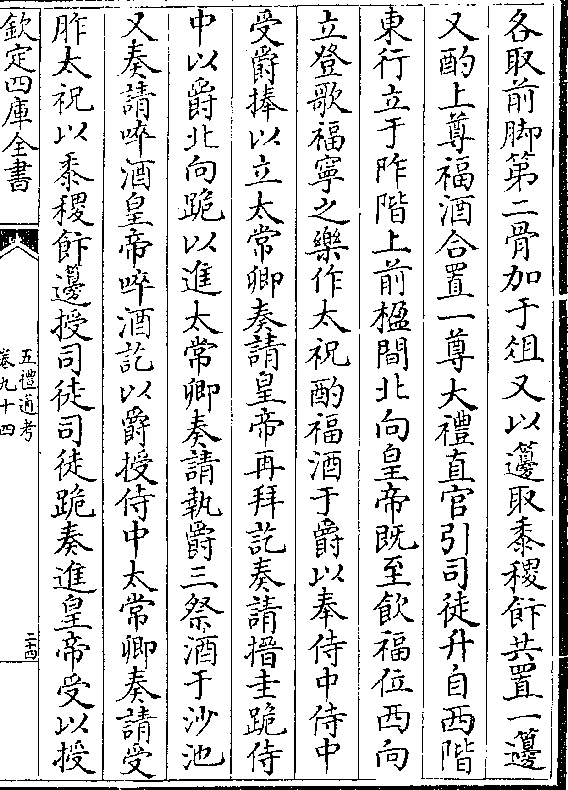 各取前脚第二骨加于俎又以籩取黍稷飰共置一籩
又酌上尊福酒合置一尊大禮直官引司徒升自西階
東行立于阼階上前楹間北向皇帝既至飲福位西向
立登歌福寧之樂作太祝酌福酒于爵以奉侍中侍中
受爵捧以立太常卿奏請皇帝再拜訖奏請搢圭跪侍
中以爵北向跪以進太常卿奏請執爵三祭酒于沙池
又奏請啐酒皇帝啐酒訖以爵授侍中太常卿奏請受
胙太祝以黍稷飰籩授司徒司徒跪奏進皇帝受以授
欽定四庫全書
五禮通考
卷九十四
二十四